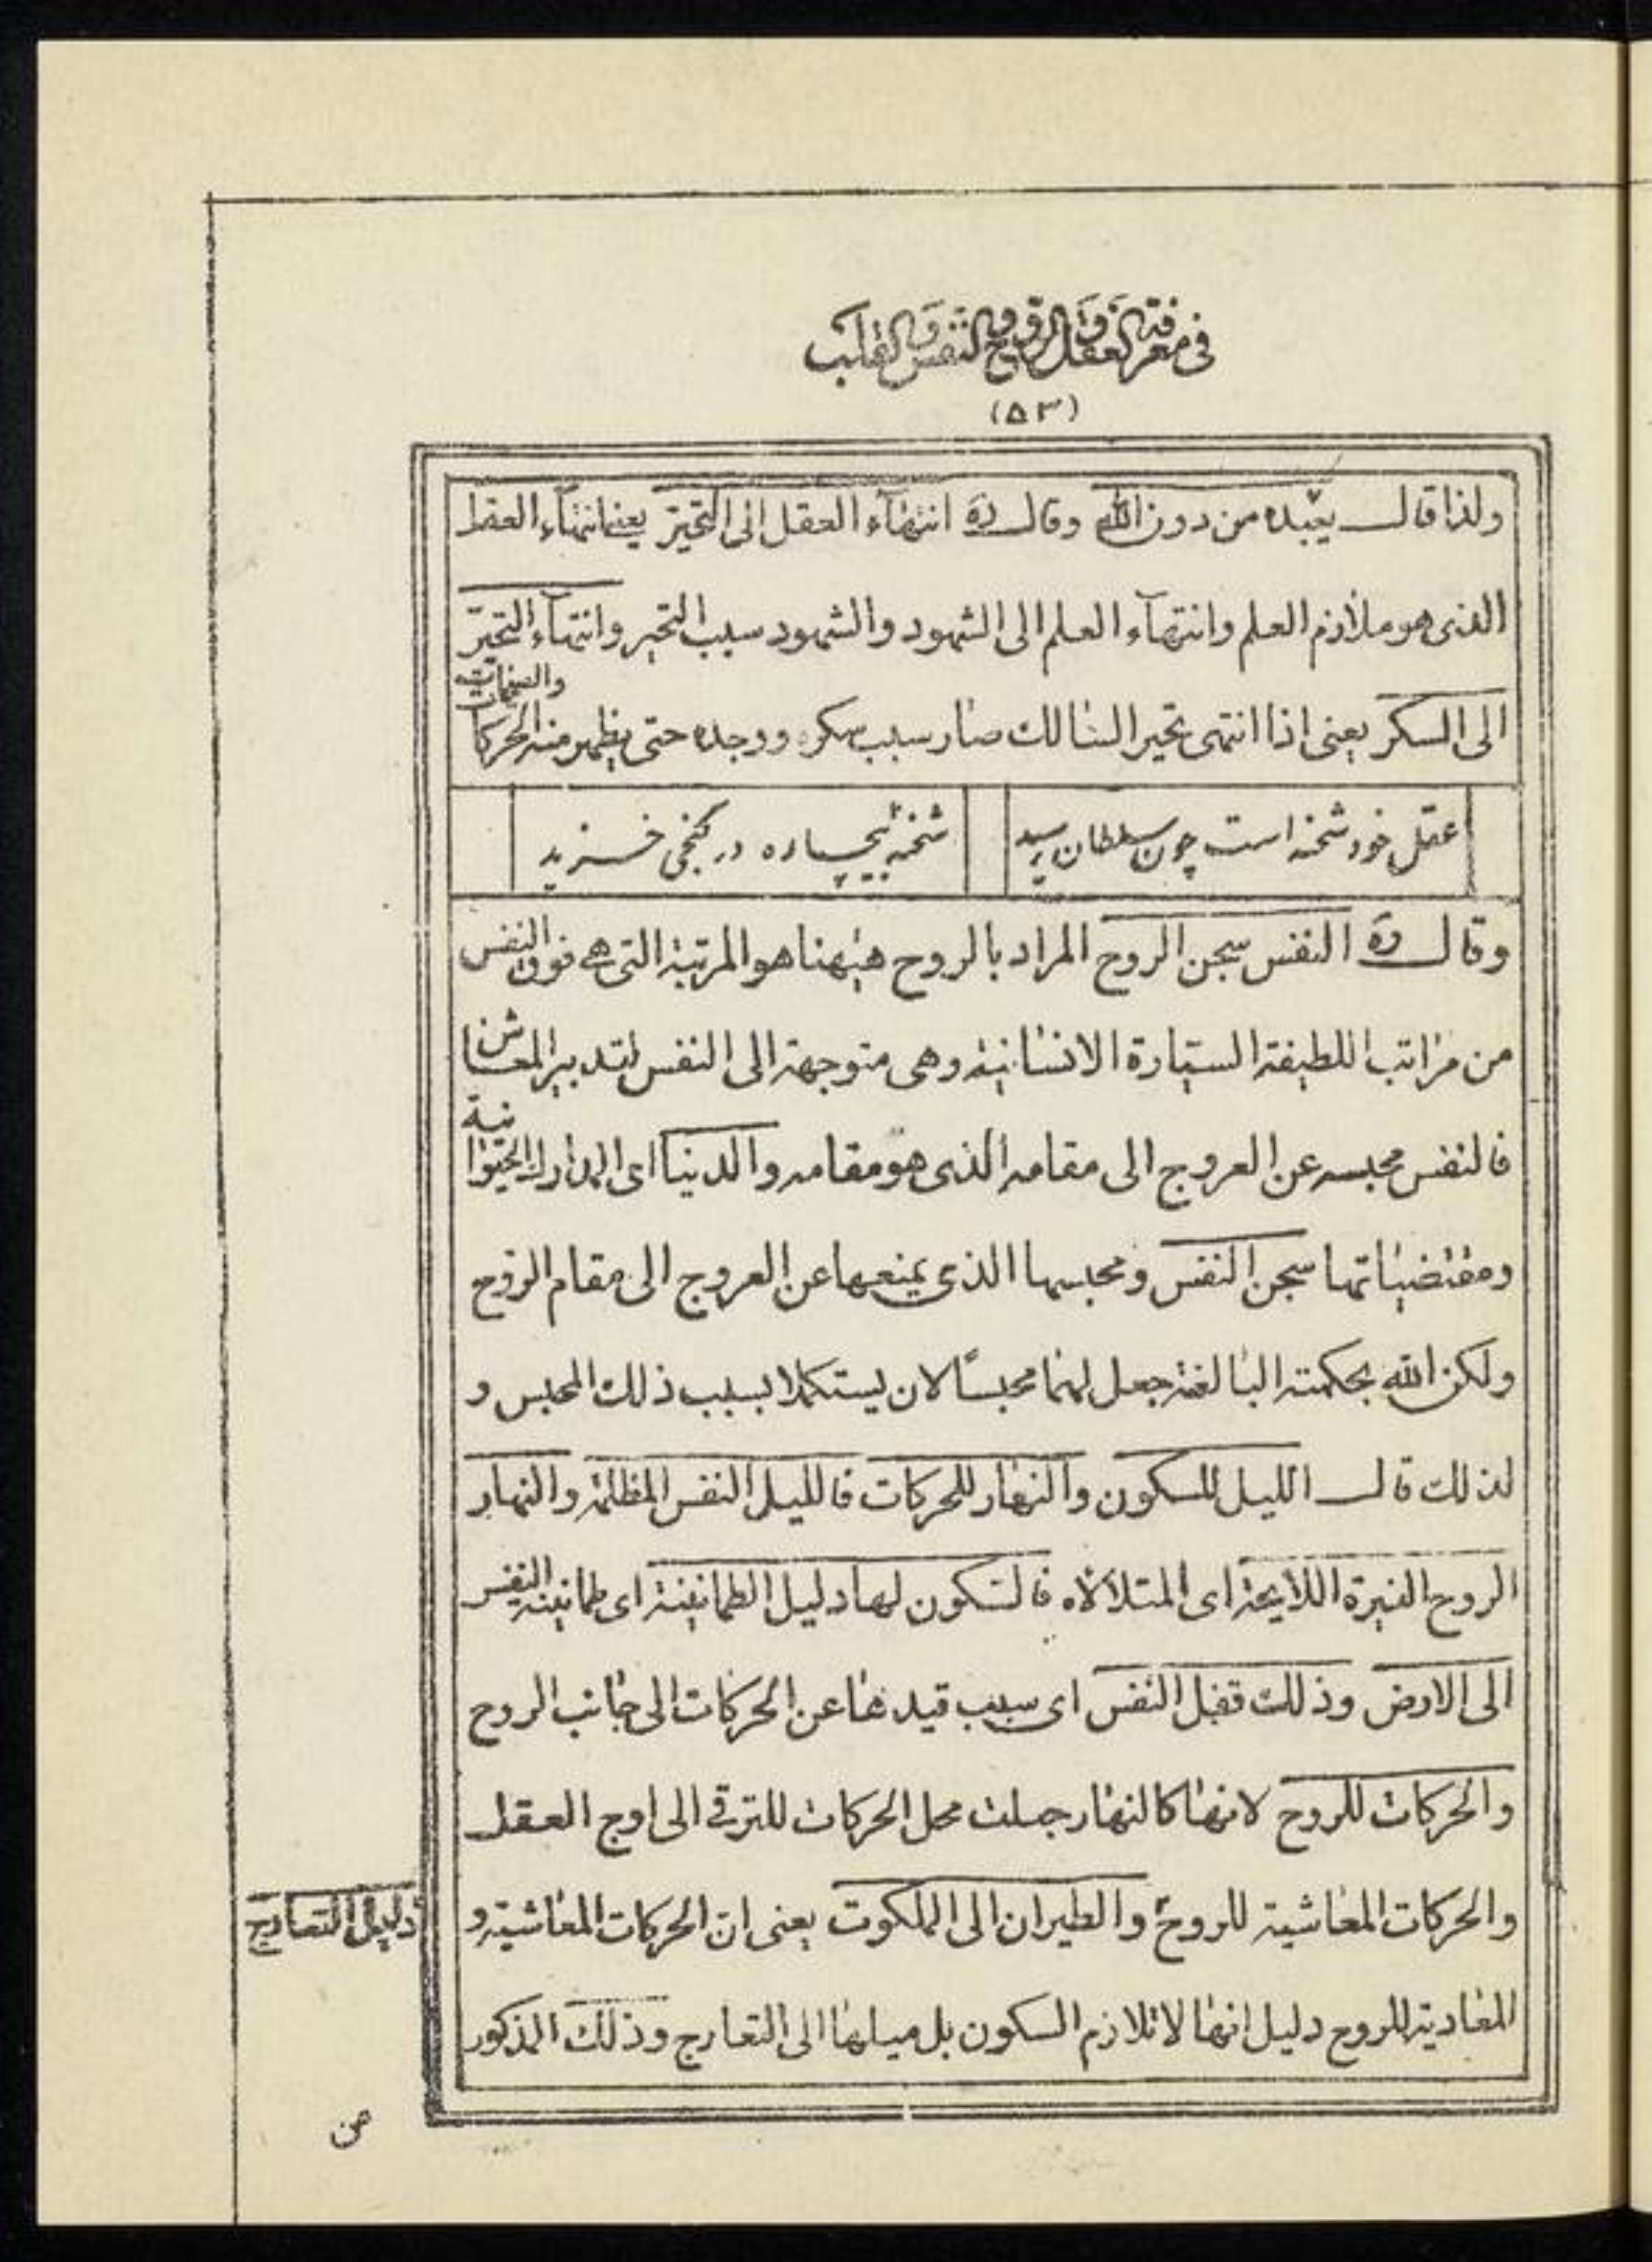 فی معرفة العقل والروح والنفس والقلب
(۵۳)
ولذا قال یعبده من دون الله وقال ره انتهآء العقل الی التحیر یعنی انتهآء العقل
الذی هو ملازم العلم وانتهآء العلم الی الشهود والشهود سبب التحیر وانتهآء التحیر
الی السکر یعنی اذا انتهی تحیر السالك صار سبب سکره ووجده حتی یظهر منه الحرکات
عقل خود شحنه است چون سلطان رسید
شحنهٔ بیچاره در کنجی خزید
وقال ره النفس سجن الروح المراد بالروح هیهنا هو المرتبة التی هی فوق النفس
من مراتب اللطیفة السیارة الانسانیة وهی متوجهة الی النفس لتدبیر المعاش
فالنفس محبسه عن العروج الی مقامه الذی هو مقامه والدنیا ای المدارك الحیوانیة
ومقتضیاتها سجن النفس ومحبسها الذی یمنعها عن العروج الی مقام الروح
ولکن الله بحکمته البالغة جعل لهما محبسًا لان یستکملا بسبب ذلك المحبس و
لذلك قال اللیل للسکون والنهار للحرکات فاللیل النفس المظلمة والنهار
الروح النیرة اللایحة ای المتلألأه فالسکون لها دلیل الطمانینة ای طمانینة النفس
الی الارض وذلك قفل النفس ای سبب قیدها عن الحرکات الی جانب الروح
والحرکات للروح لانها کالنهار جعلت محل الحرکات للترقی الی اوج العقل
والحرکات المعاشیة للروح والطیران الی الملکوت یعنی ان الحرکات المعاشیة و
دلیل التعارج
المعادیة للروح دلیل انها لا تلازم السکون بل میلها الی التعارج وذلك المذکور
من